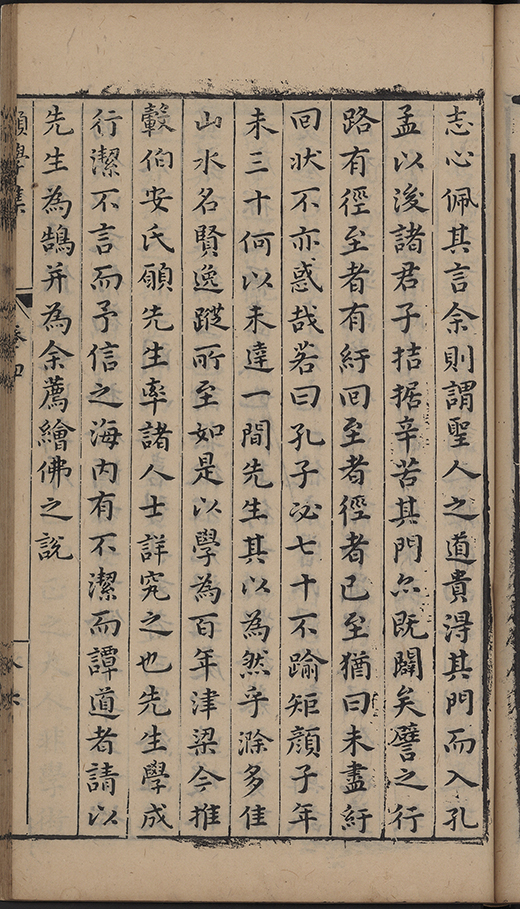 志心佩其言余則謂聖人之道貴得其門而入孔
孟以後諸君子拮据辛苦其門亦既闢矣譬之行
路有徑至者有紆回至者徑者已至猶曰未盡紆
回狀不亦惑哉若曰孔子必七十不踰矩顏子年
未三十何以未達一間先生其以為然乎滁多佳
山水名賢逸蹤所至如是以學為百年津梁今推
轂伯安氏願先生率諸人士詳究之也先生學成
行潔不言而予信之海內有不潔而譚道者請以
先生為鵠并為余薦繪佛之說
願學集
卷四